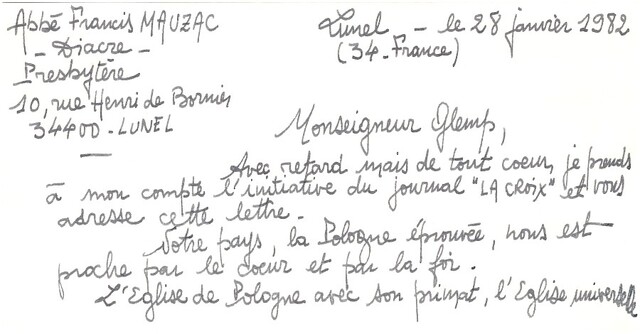 Abbé Francis MAUZAC
- Diacre -
Presbytère
10, rue Henri de Bornier
34400 - LUNEL
Lunel - le 28 janvier 1982
(34 - France)
Monseigneur Glemp,
Avec retard mais de tout coeur, je prends
à mon compte l'initiative du journal "LA CROIX" et vous
adresse cette lettre.
Votre pays, la Pologne éprouvée, nous est
proche par le coeur et par la foi.
L'Eglise de Pologne avec son primat, l'Eglise universelle